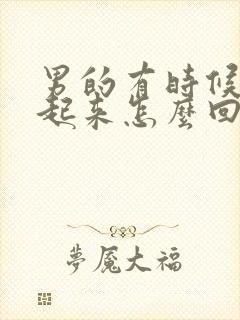 男的有時候
起来怎麼回
夢魘大福